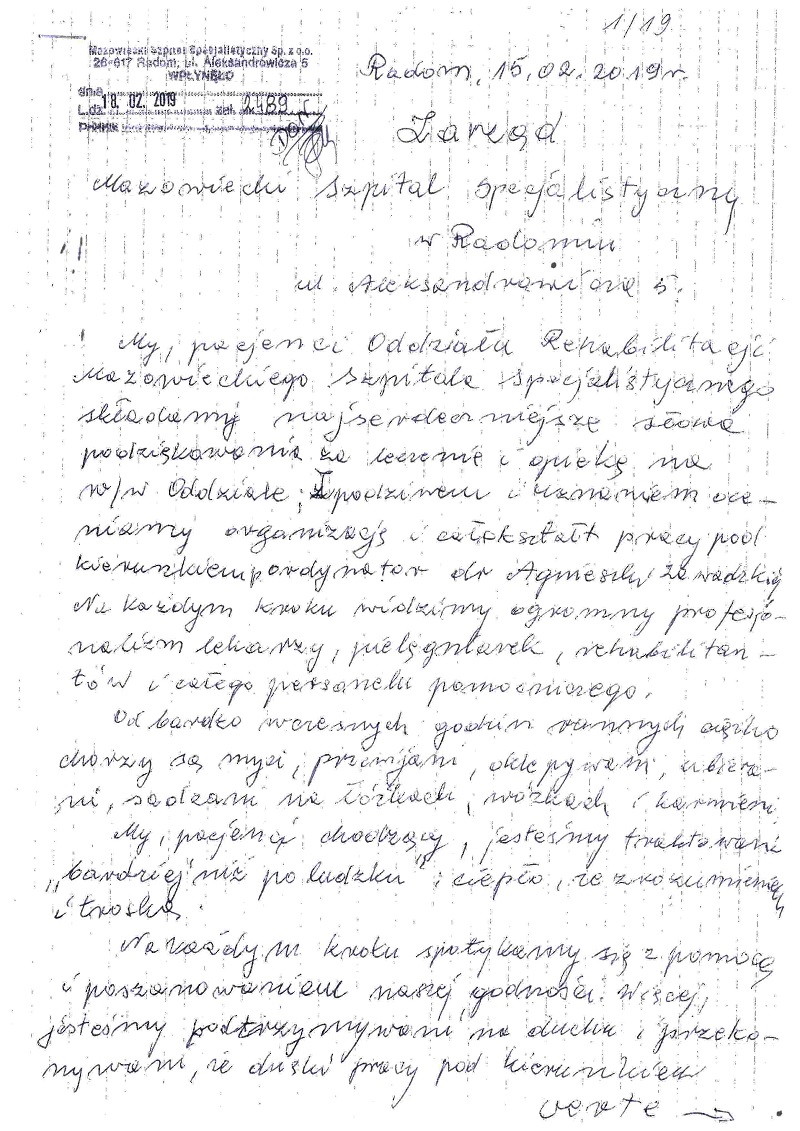 1/19
Mazowiecki Szpital Specjalistyczny Sp. z o.o.
26-617 Radom, ul. Aleksandrowicza 5
WPŁYNĘŁO
dnia
18. 02. 2019
L.dz. zał. 2489
Radom, 15.02.2019 r.
Zarząd
Mazowiecki Szpital Specjalistyczny
w Radomiu
ul. Aleksandrowicza 5.
My, pacjenci Oddziału Rehabilitacji
Mazowieckiego Szpitala Specjalistycznego
składamy najserdeczniejsze słowa
podziękowania za leczenie i opiekę na
w/w Oddziale. Z podziwem i uznaniem oce-
niamy organizację i całokształt pracy pod
kierunkiem ordynator dr Agnieszki Zawadzkiej
Na każdym kroku widzimy ogromny profesjo-
nalizm lekarzy, pielęgniarek, rehabilitan-
tów i całego personelu pomocniczego.
Od bardzo wczesnych godzin rannych ciężko
chorzy są myci, przewijani, oklepywani, ubiera-
ni, sadzani na łóżkach, wózkach i karmieni
My, pacjenci chodzący, jesteśmy traktowani
"bardziej niż po ludzku" i ciepło, ze zrozumieniem
i troską.
Na każdym kroku spotykamy się z pomocą
i poszanowaniem naszej godności. Więcej,
jesteśmy podtrzymywani na duchu i przeko-
nywani, że dzięki pracy pod kierunkiem
verte →